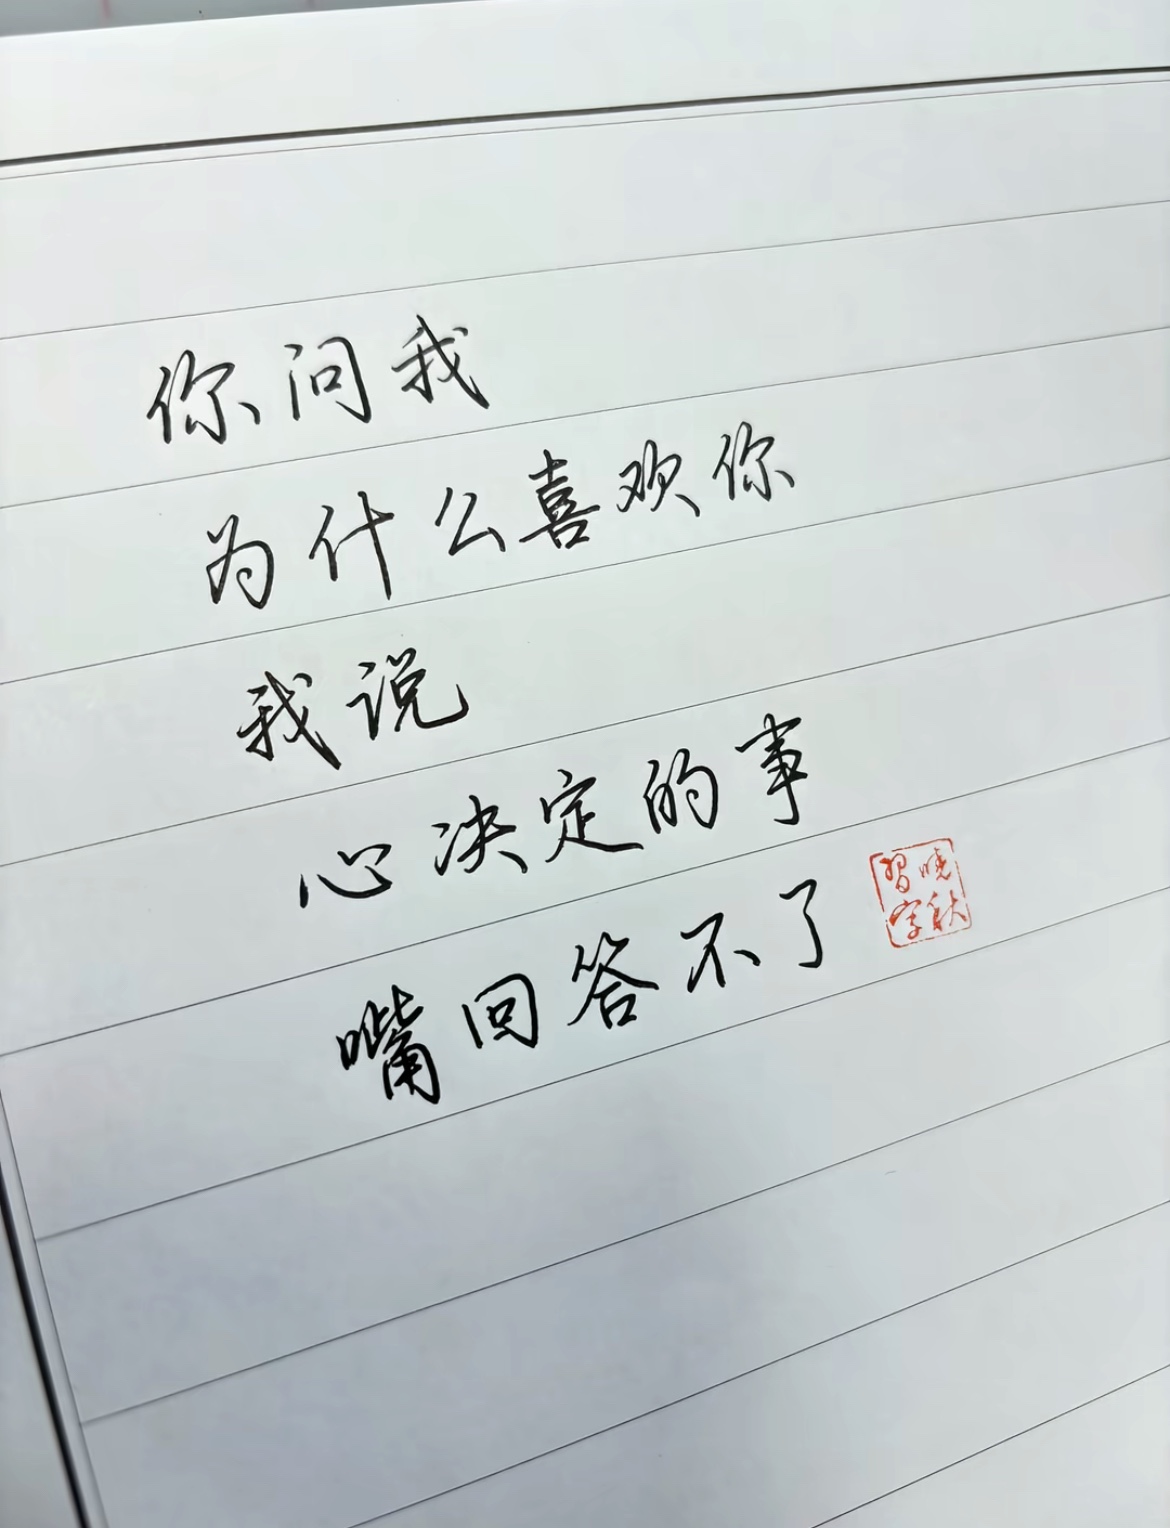 你问我
为什么喜欢你
我说
心决定的事
嘴回答不了
晓秋
习字